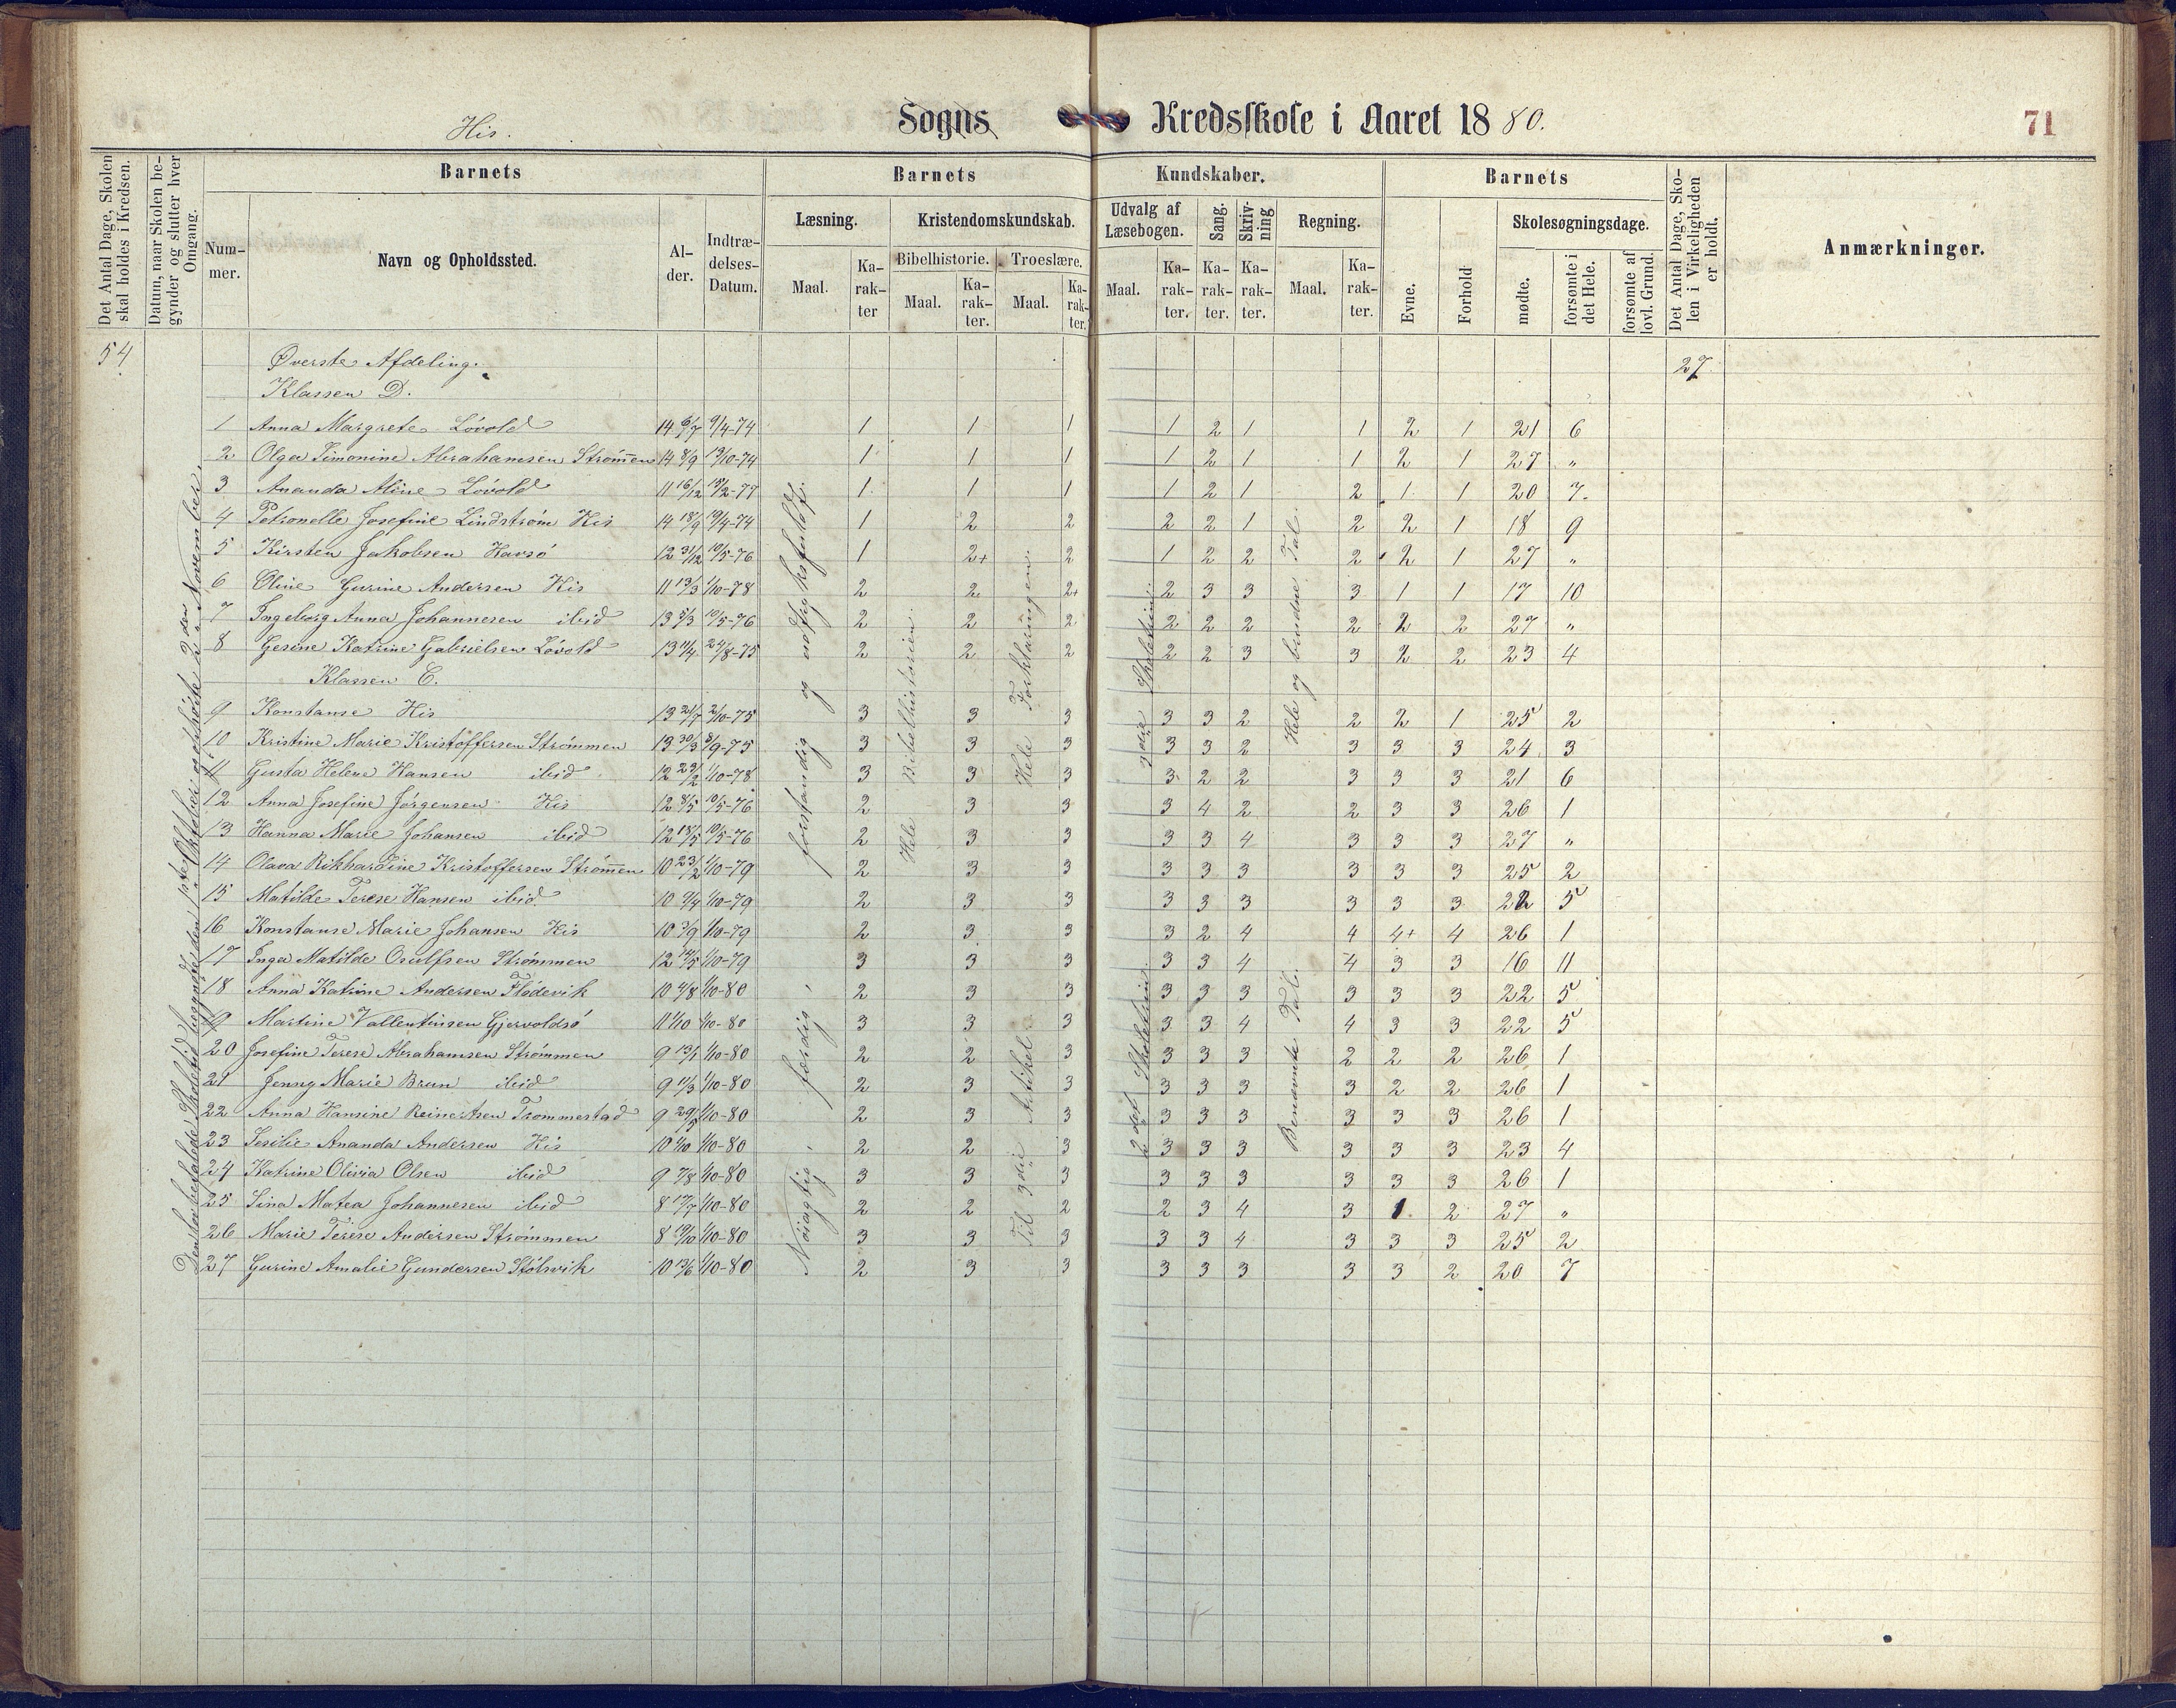 His. Sogns Kredsskole i Aaret 1880. 71
Det Antal Dage, Skolen skal holdes i Kredsen.
Datum, naar Skolen begynder og slutter hver Omgang.
Barnets Barnets Kundskaber. Barnets
Nummer. Navn og Opholdssted. Alder. Indtrædelses-Datum.
Læsning. Kristendomskundskab. Udvalg af Læsebogen. Sang. Skrivning Regning.
Bibelhistorie. Troeslære.
Maal. Karakter Maal. Karakter. Maal. Karakter. Maal. Karakter. Karakter. Karakter. Maal. Karakter.
Evne. Forhold Skolesøgningsdage. mødte. forsømte i det Hele. forsømte af lovl. Grund.
Det Antal Dage, Skolen i Virkeligheden er holdt.
Anmærkninger.
54 Øverste Afdeling. 27
Klassen D.
1 Anna Margrete Lövold 14 6/7 9/4-74 1 1 1 1 2 1 1 2 1 21 6
2 Olga Simonine Abrahamsen Strömmen 14 8/9 13/10-74 1 1 1 1 2 1 1 2 1 27 "
3 Ananda Aline Lövold 11 16/12 15/2-77 1 1 1 1 2 1 2 1 1 20 7
4 Petronelle Josefine Lindström His 14 18/9 19/4-74 1 2 2 2 2 1 2 2 1 18 9
5 Kirsten Jakobsen Havsö 12 31/12 10/5-76 1 2+ 2 1 2 2 2 2 1 27 "
6 Oline Gurine Andersen His 11 13/3 1/10-78 2 2 2+ 2 3 3 3 1 1 17 10
7 Ingeborg Anna Johannesen ibid 13 5/3 10/5-76 2 2 2 2 2 2 2 2 2 27 "
8 Gesine Katrine Gabrielsen Lövold 13 11/4 24/8-75 2 2 2 2 2 3 3 2 2 23 4
Klassen C.
9 Konstanse His 13 21/7 2/10-75 3 3 3 3 3 2 2 2 1 25 2
10 Kristine Marie Kristoffersen Strömmen 13 30/3 8/9-75 3 3 3 3 3 2 3 3 3 24 3
11 Gusta Helene Hansen ibid 12 23/2 1/10-78 3 3 3 3 2 2 3 3 3 21 6
12 Anna Josefine Jörgensen His 12 8/5 10/5-76 2 3 3 3 4 2 2 3 3 26 1
13 Hanna Marie Johansen ibid 12 18/5 10/5-76 2 3 3 3 3 4 3 3 3 27 "
14 Olava Rikhardine Kristoffersen Strömmen 10 23/2 1/10-79 2 3 3 3 3 3 3 3 3 25 2
15 Matilde Terese Hansen ibid. 10 9/4 1/10-79 2 3 3 3 3 3 3 3 3 22 5
16 Konstanse Marie Johansen His 10 3/9 1/10-79 2 3 3 3 2 4 4 4+ 4 26 1
17 Inga Matilde Osulfsen Strömmen 12 14/5 1/10-79 3 3 3 3 3 4 4 3 3 16 11
18 Anna Katrine Andersen Flödevik 10 4/8 1/10-80 2 3 3 3 3 3 3 3 3 22 5
19 Martine Vallentinsen Gjervoldsö 11 1/10 1/10-80 3 3 3 3 3 4 4 3 3 22 5
20 Josefine Terese Abrahamsen Strömmen 9 13/1 1/10-80 2 2 3 3 3 3 2 2 2 26 1
21 Jenny Marie Brun ibid 9 11/3 1/10-80 2 3 3 3 3 3 3 2 2 26 1
22 Anna Hansine Reinertsen Trommestad 9 29/5 1/10-80 2 3 3 3 3 3 3 3 3 26 1
23 Sesilie Ananda Andersen His 10 1/10 1/10-80 2 2 3 3 3 3 3 3 3 23 4
24 Katrine Olivia Olsen ibid 9 7/8 1/10-80 3 3 3 3 3 3 3 3 3 26 1
25 Sina Matea Johannesen ibid 8 17/7 1/10-80 2 2 2 2 3 4 3 1 2 27 "
26 Marie Terese Andersen Strömmen 8 19/10 1/10-80 3 3 3 3 3 4 3 3 3 25 2
27 Gurine Amalie Gundersen Stölsvik 10 13/6 1/10-80 2 3 3 3 3 3 3 3 2 20 7
Den lovbefalede Skoletid begyndte den 1ste Oktober og ophörte 2den November.
Nöiagtig, færdig, forstandig og udtryksfuldt.
Hele Bibelhistorien.
Til 3die Artikel
Hele Forklaringen.
2det Skoletrin.
3die Skoletrin.
Benævnte Tal.
Hele og brudne Tal.